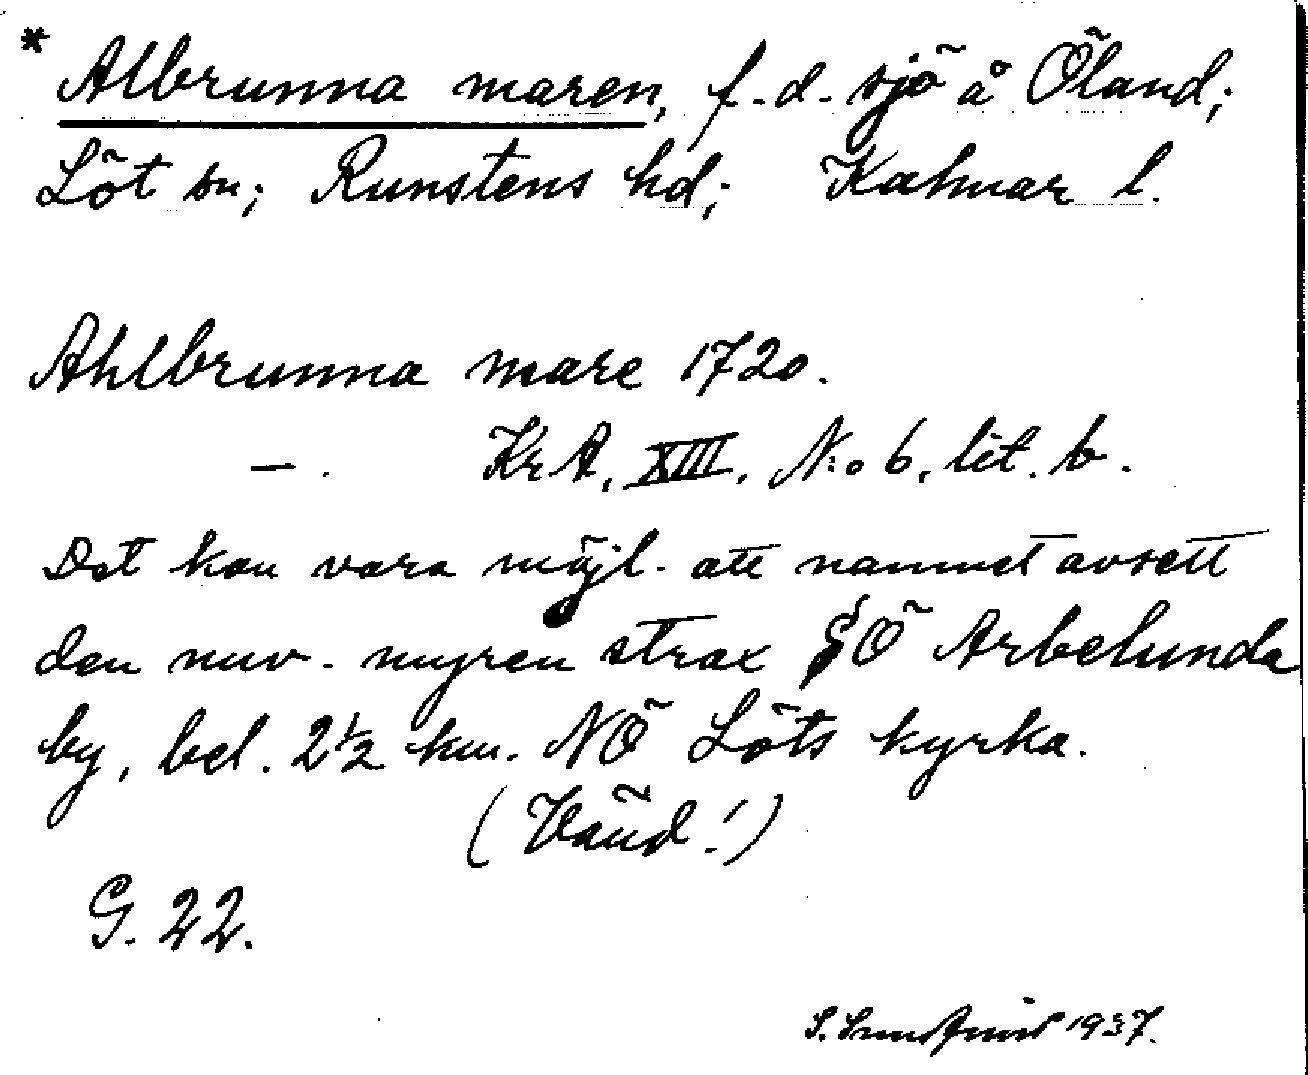 * Albrunna maren, f.d. sjö å Öland;
Löt sn; Runstens hd; Kalmar l.
Ahlbrunna mare 1720.
— . KrA, XIII, N:o 6, lit. b.
Det kan vara möjl. att namnet avsett
den nuv. myren strax SÖ Arbelunda
by, bel. 2½ km. NÖ Löts kyrka.
(Vänd!)
G. 22.
1937.